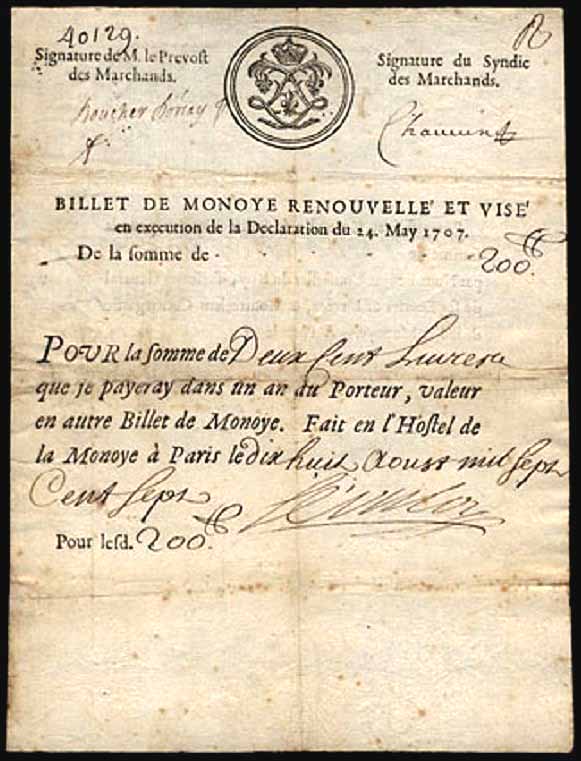 40129.
Signature de M. le Prevost
des Marchands.
Boucher
R
Signature du Syndic
des Marchands.
BILLET DE MONOYE RENOUVELLE' ET VISE'
en execution de la Declaration du 24. May 1707.
De la somme de - - 200
POUR la somme de Deux Cent Livres
que je payeray dans un an au Porteur, valeur
en autre Billet de Monoye. Fait en l'Hostel de
la Monoye à Paris le dix huit Aoust mil sept
Cent sept
Pour lesd. 200